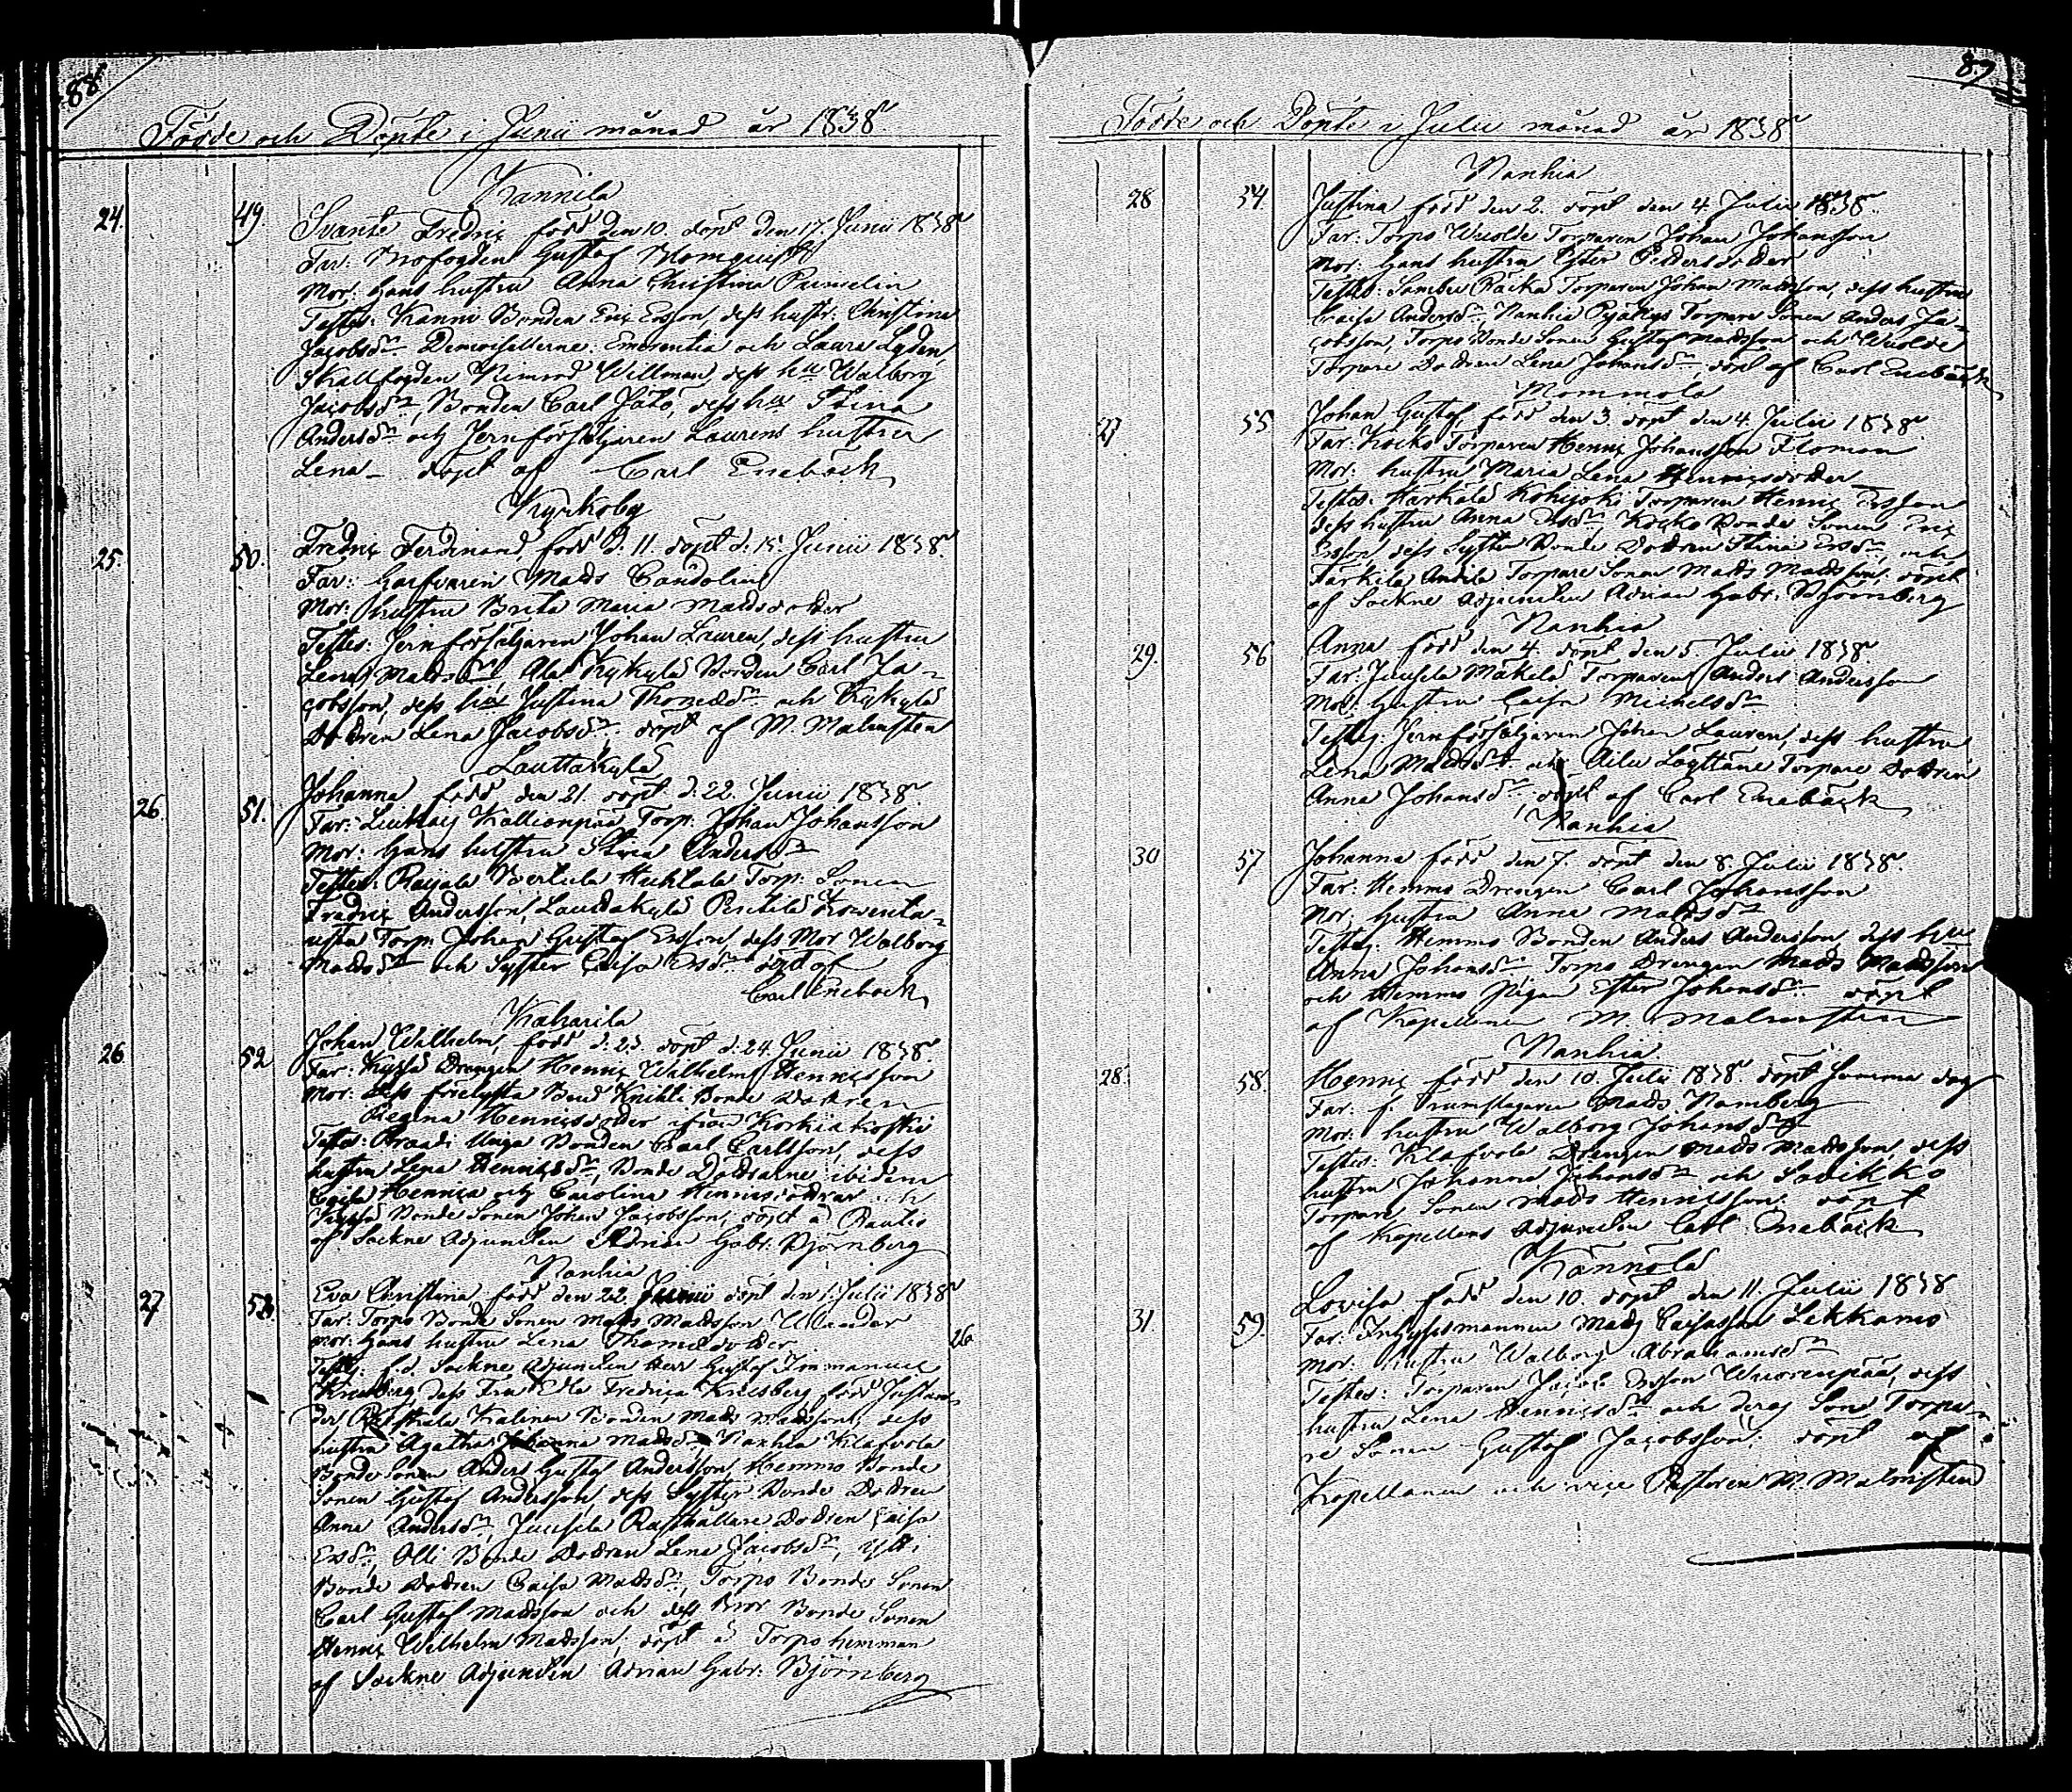 88.
Födde och Döpte i Junii månad år 1838.
Kannila
24. 49. Svante Fredric född den 10. döpt den 17. Junii 1838
Far: Brofogden Gustaf Blomquist
Mor: hans hustru Anna Christina
Testes: Kannu Bonden Eric Ersson, dess hustr: Christina
Jacobsdr Demoisellerne: Emerentia och Laura Lydén,
Skallfogden Nimrod Willman, dess hu Walborg
Jacobsdr, Bonden Carl Jato, dess hu Stina
Andersdr och Jernförsäljaren Laurens hustru
Lena – döpt af Carl Enebäck
Kyrkoby
25. 50. Fredric Ferdinand född d. 11. döpt d. 15. Junii 1838.
Far: Garfvaren Matts Candolin
Mor: hustru Brita Maria Mattsdotter
Testes: Jernförsäljaren Johan Lauren, dess hustru
Lena Mattsdr, Ala Kykylä Bonden Carl Ja-
cobsson, dess hu Justina Thomedr och Kykylä
Dottren Lena Jacobsdr döpt af M. Malmsten
Lauttakylä
26. 51. Johanna född den 21. döpt d. 22. Junii 1838.
Far: Kallionpää Torp: Johan Johansson
Mor: hans hustru Stina Andersdr
Testes: Raijala Torp: Sonen
Fredric Andersson, Lauttakylä Pentilä
Torp: Johan Gustaf Ersson, dess Mor Walborg
Mattsdr och Syster Caisa Ersdr döpt af
Carl Enebäck
Kaharila
26 52 Johan Wilhelm, född d. 23. döpt d. 24. Junii 1838.
Far: Drengen Henric Wilhelm Henricsson
Mor: dess Knihti Bonde Dottren
Regina Henricsdotter ifrån Korkiakoski
Testes: Unga Bonden Carl Carlsson, dess
hustru Lena Henricsdr, Bonde Döttrarne ibidem
Caisa Henrica och Carolina Henricsdöttrar och
Bonde Sonen Johan Jacobsson, döpt å Rautio
af Sockne Adjuncten Adrian Gabr: Björnberg
Nanhia
27 53. Eva Christina född den 22. Junii döpt den 1. Julii 1838
Far: Torpo Bonde Sonen Matts Mattsson
Mor: hans hustru Lena Thomedotter 26
Testes: f.d. Sockne Adjuncten Herr Gustaf Immanuel
dess Fru Etta Fredrica född
Kalinen Bonden Matts Mattsson, dess
hustru Agatha Johanna Mattsdr Nanhia Klafvola
Bonde Sonen Anders Gustaf Andersson, Hemmo Bonde
Sonen Gustaf Andersson, dess Syster Bonde Dottren
Anna Andersdr, Jussila Rusthållare Dottren Caisa
Ersdr, Olli Bonde Dottren Lena Jacobsdr,
Bonde Dottren Caisa Mattsdr, Torpo Bonde Sonen
Carl Gustaf Mattsson och dess Bror Bonde Sonen
Henric Wilhelm Mattsson, döpt å Torpo hemman
af Sockne Adjuncten Adrian Gabr: Björnberg
87
Födde och Döpte i Julii månad år 1838
Nanhia
28 54. Justina född den 2. döpt den 4. Julii 1838.
Far: Torpo Torparen Johan Johansson
Mor: hans hustru Ester Pettersdotter
Testes: Sambu Räikä Torparen Johan Mattsson, dess hustru
Caisa Andersdr, Nanhia Torpare Sonen Anders Ja-
cobsson, Torpo Bonde Sonen Gustaf Mattsson och
Torpare Dottren Lena Johansdr, döpt af Carl Enebäck
Mommola
27 55 Johan Gustaf född den 3. döpt den 4. Julii 1838.
Far: Kocko Torparen Henric Johansson Floman
Mor: hustru Maria Lena Henricsdotter
Testes: Karhala Kokijoki Torparen Henric Ersson
dess hustru Anna Ersdr, Kocko Bonde Sonen Eric
Ersson, dess Syster Bonde Dottren Stina Ersdr, och
Anttila Torpare Sonen Matts Mattsson. döpt
af Sockne Adjuncten Adrian Gabr: Björnberg
Nanhia
29. 56 Anna född den 4. döpt den 5. Julii 1838.
Far: Jussila Mäkelä Torparen Anders Andersson
Mor: hustru Caisa Michelsdr
Testes: Jernförsäljaren Johan Lauren, dess hustru
Lena Mattsdr och Löyttäne Torpare Dottren
Anna Johansdr, döpt af Carl Enebäck
Nanhia
30 57 Johanna född den 7. döpt den 8. Julii 1838.
Far: Hemmo Drengen Carl Johansson
Mor: hustru Anna Mattsdr
Testes: Hemmo Bonden Anders Andersson, dess hu
Anna Johansdr, Torpo Drengen Matts Mattsson
och Hemmo Pigan Ester Johansdr döpt
af Kapellanen M. Malmsten
Nanhia
28. 58. Henric född den 10. Julii 1838. döpt samma dag
Far: f. Trumslagaren Matts Ramberg
Mor: hustru Walborg Johansdr
Testes: Klafvola Drengen Matts Mattsson, dess
hustru Johanna Johansdr och Savikko
Torpare Sonen Matts Henricsson. döpt
af Kapellans Adjuncten Carl Enebäck
Kännölä
31. 59. Lovisa född den 10. döpt den 11. Julii 1838
Far: Inhysesmannen Matts Lekkamo
Mor: hustru Walborg Abrahamsdr
Testes: Torparen Jacob Ersson Wuorenpää, dess
hustru Lena Henricsdr och deras Son Torpa-
re Sonen Gustaf Jacobsson. döpt af
Kapellanen och vice Pastoren M. Malmsten